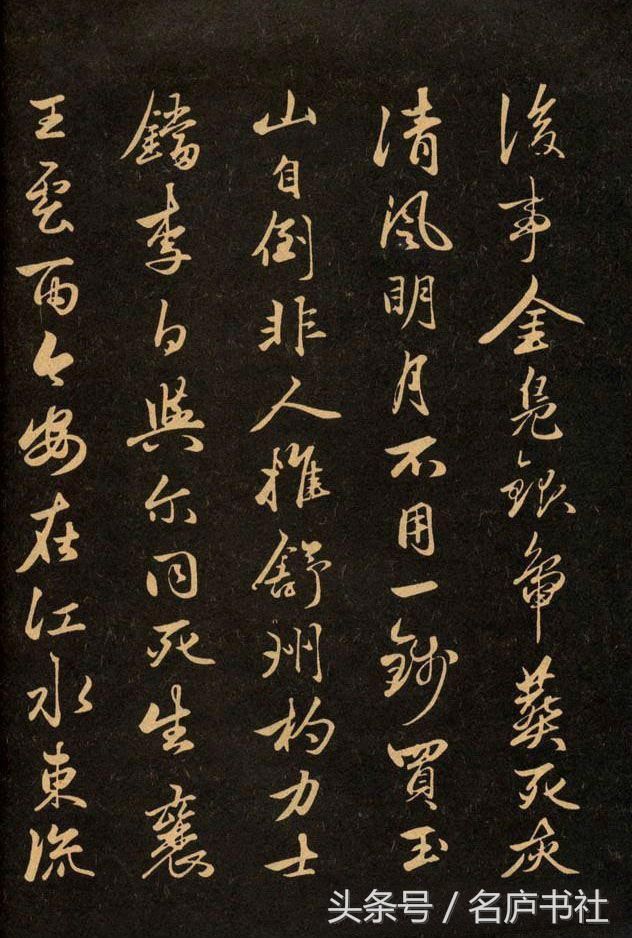 後事金鳧銀葬死灰
清風明月不用一錢買玉
山自倒非人推舒州杓力士
鐺李白與尔同死生襄
王雲雨今安在江水東流
头条号 / 名庐书社